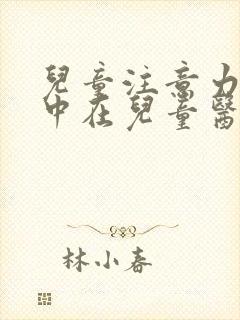 兒童注意力
中在兒童醫
林小春